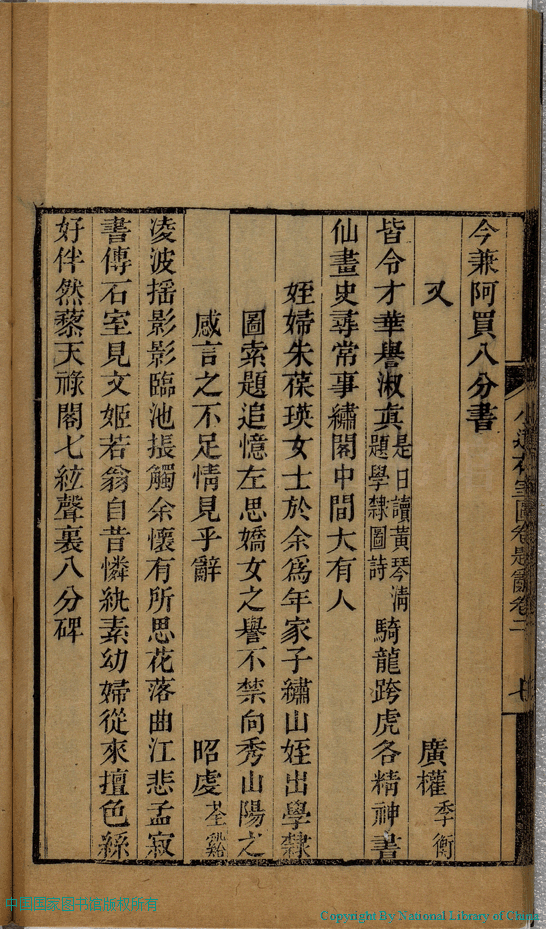 今兼阿買八分書
又 廣權季衡
皆令才華譽淑真是日讀黃琴清題學隸圖詩騎龍跨虎各精神書
仙畫史尋常事繡閣中間大有人
姪婦朱葆瑛女士於余爲年家子繡山姪出學隸
圖索題追憶左思嬌女之譽不禁向秀山陽之
感言之不足情見乎辭 昭虔荃谿
凌波揺影影臨池掁觸余懷有所思花落曲江悲孟寂
書傳石室見文姬若翁自昔憐紈素幼婦從來擅色絲
好伴然藜天祿閣七絃聲裏八分碑
中国国家图书馆版权所有
Copyright By National Library of China